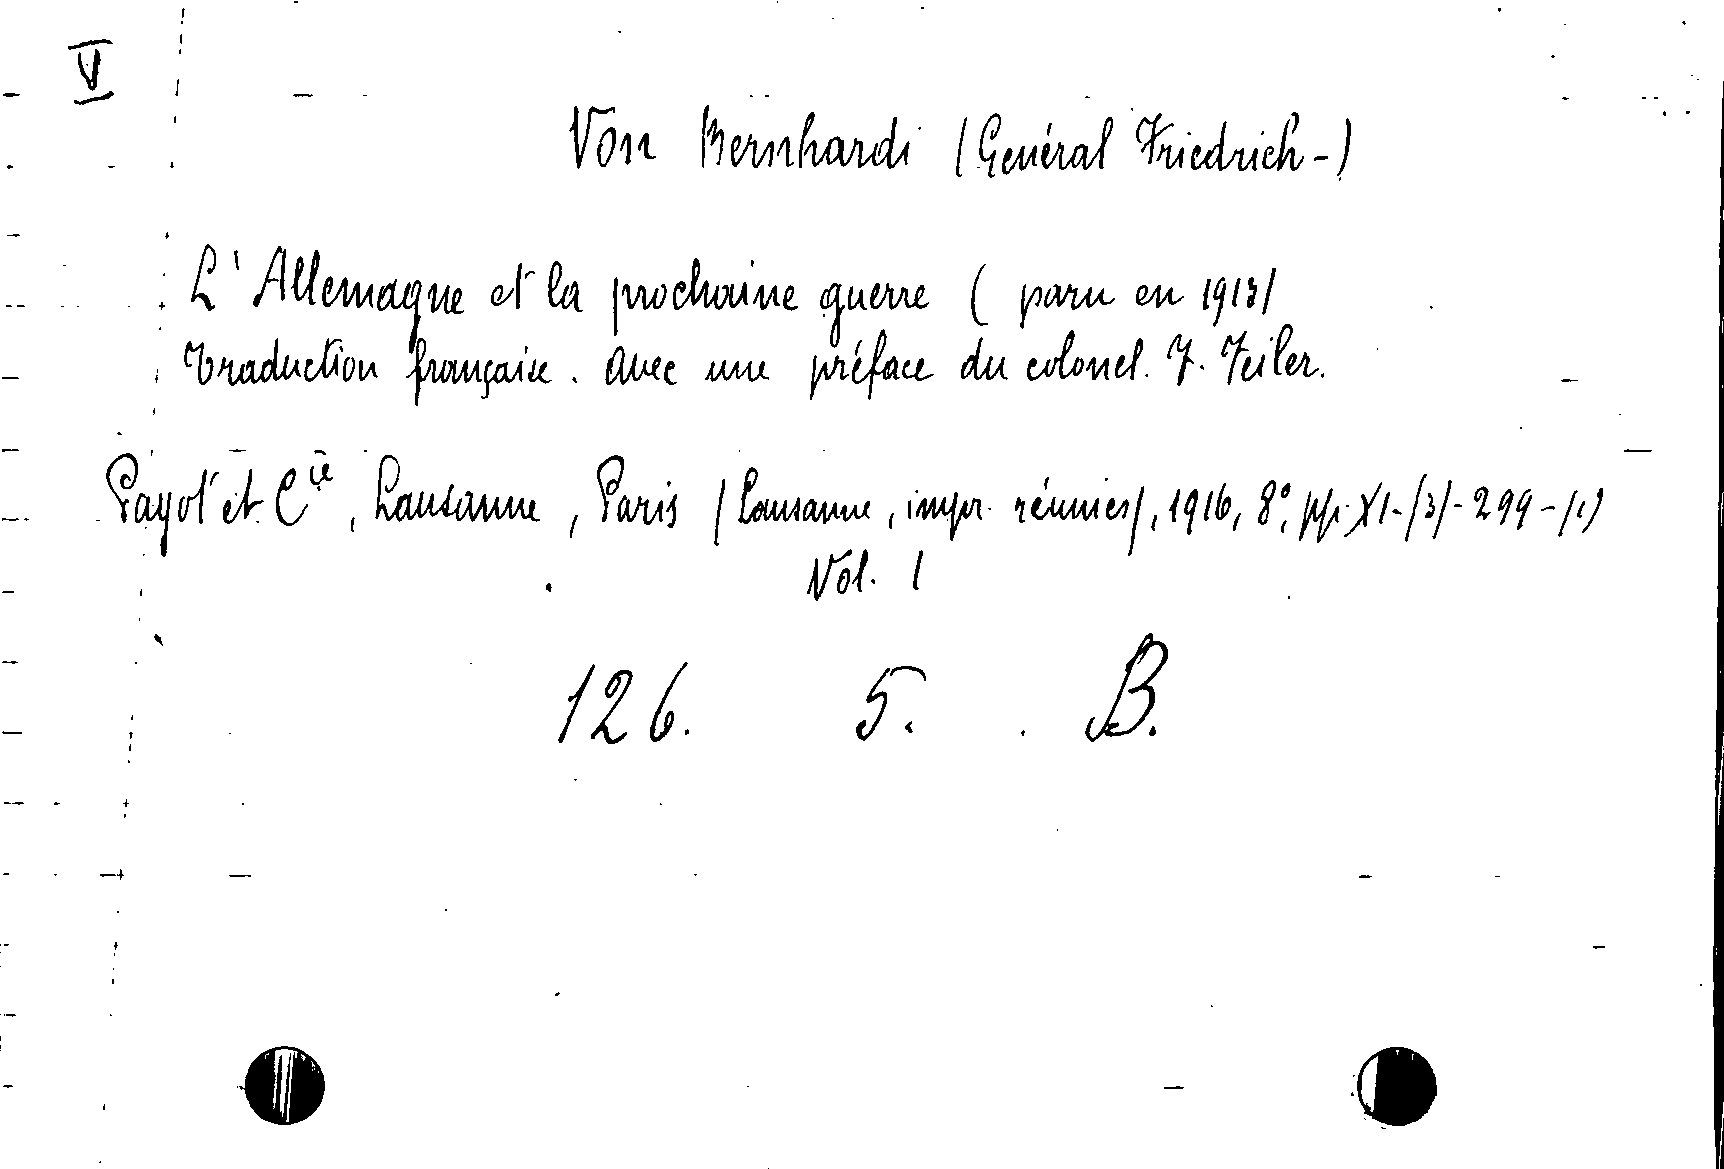 V
Von Bernhardi (Général Friedrich-)
L'Allemagne et la prochaine guerre ( paru en 1913)
Traduction française. avec une préface du colonel. F. Feiler.
Payot et Cie, Lausanne, Paris (Lausanne, impr. réunies), 1916, 8°, pp. XI-(3)-299-(1)
Vol. 1
126. 5. B.